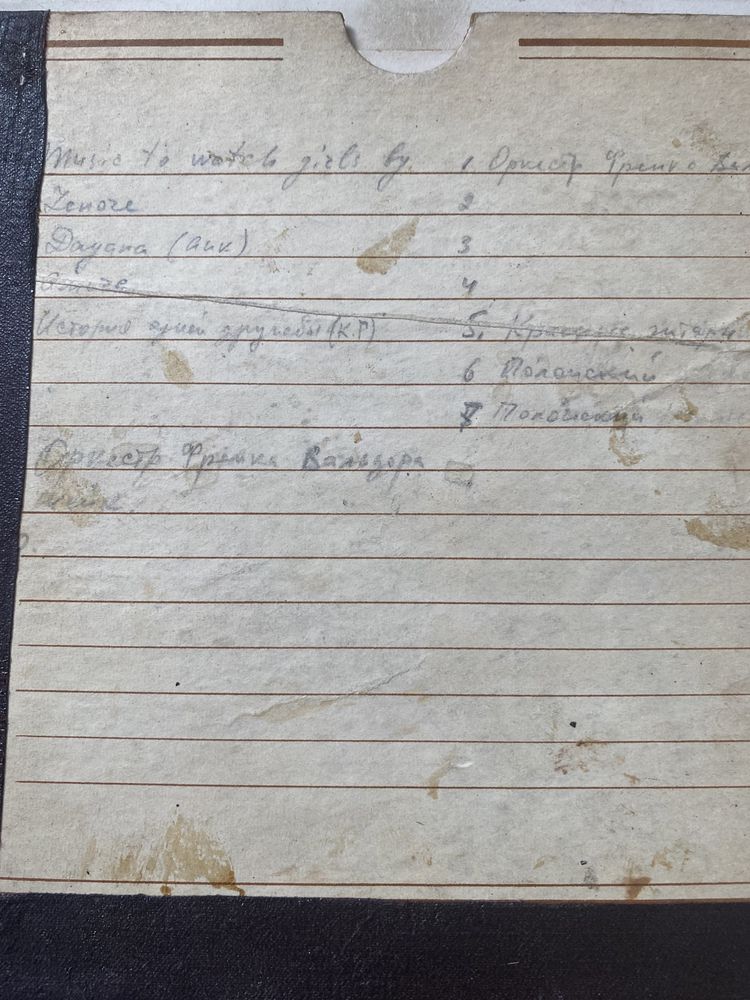 Music to watch girls by. 1 Оркестр Френка
Lenore 2
Даяна (Анк) 3
4
История одной дружбы (К.Г) 5. Красные гитары
6 Полонский
7 Полонский
Оркестр Френка Вальдора